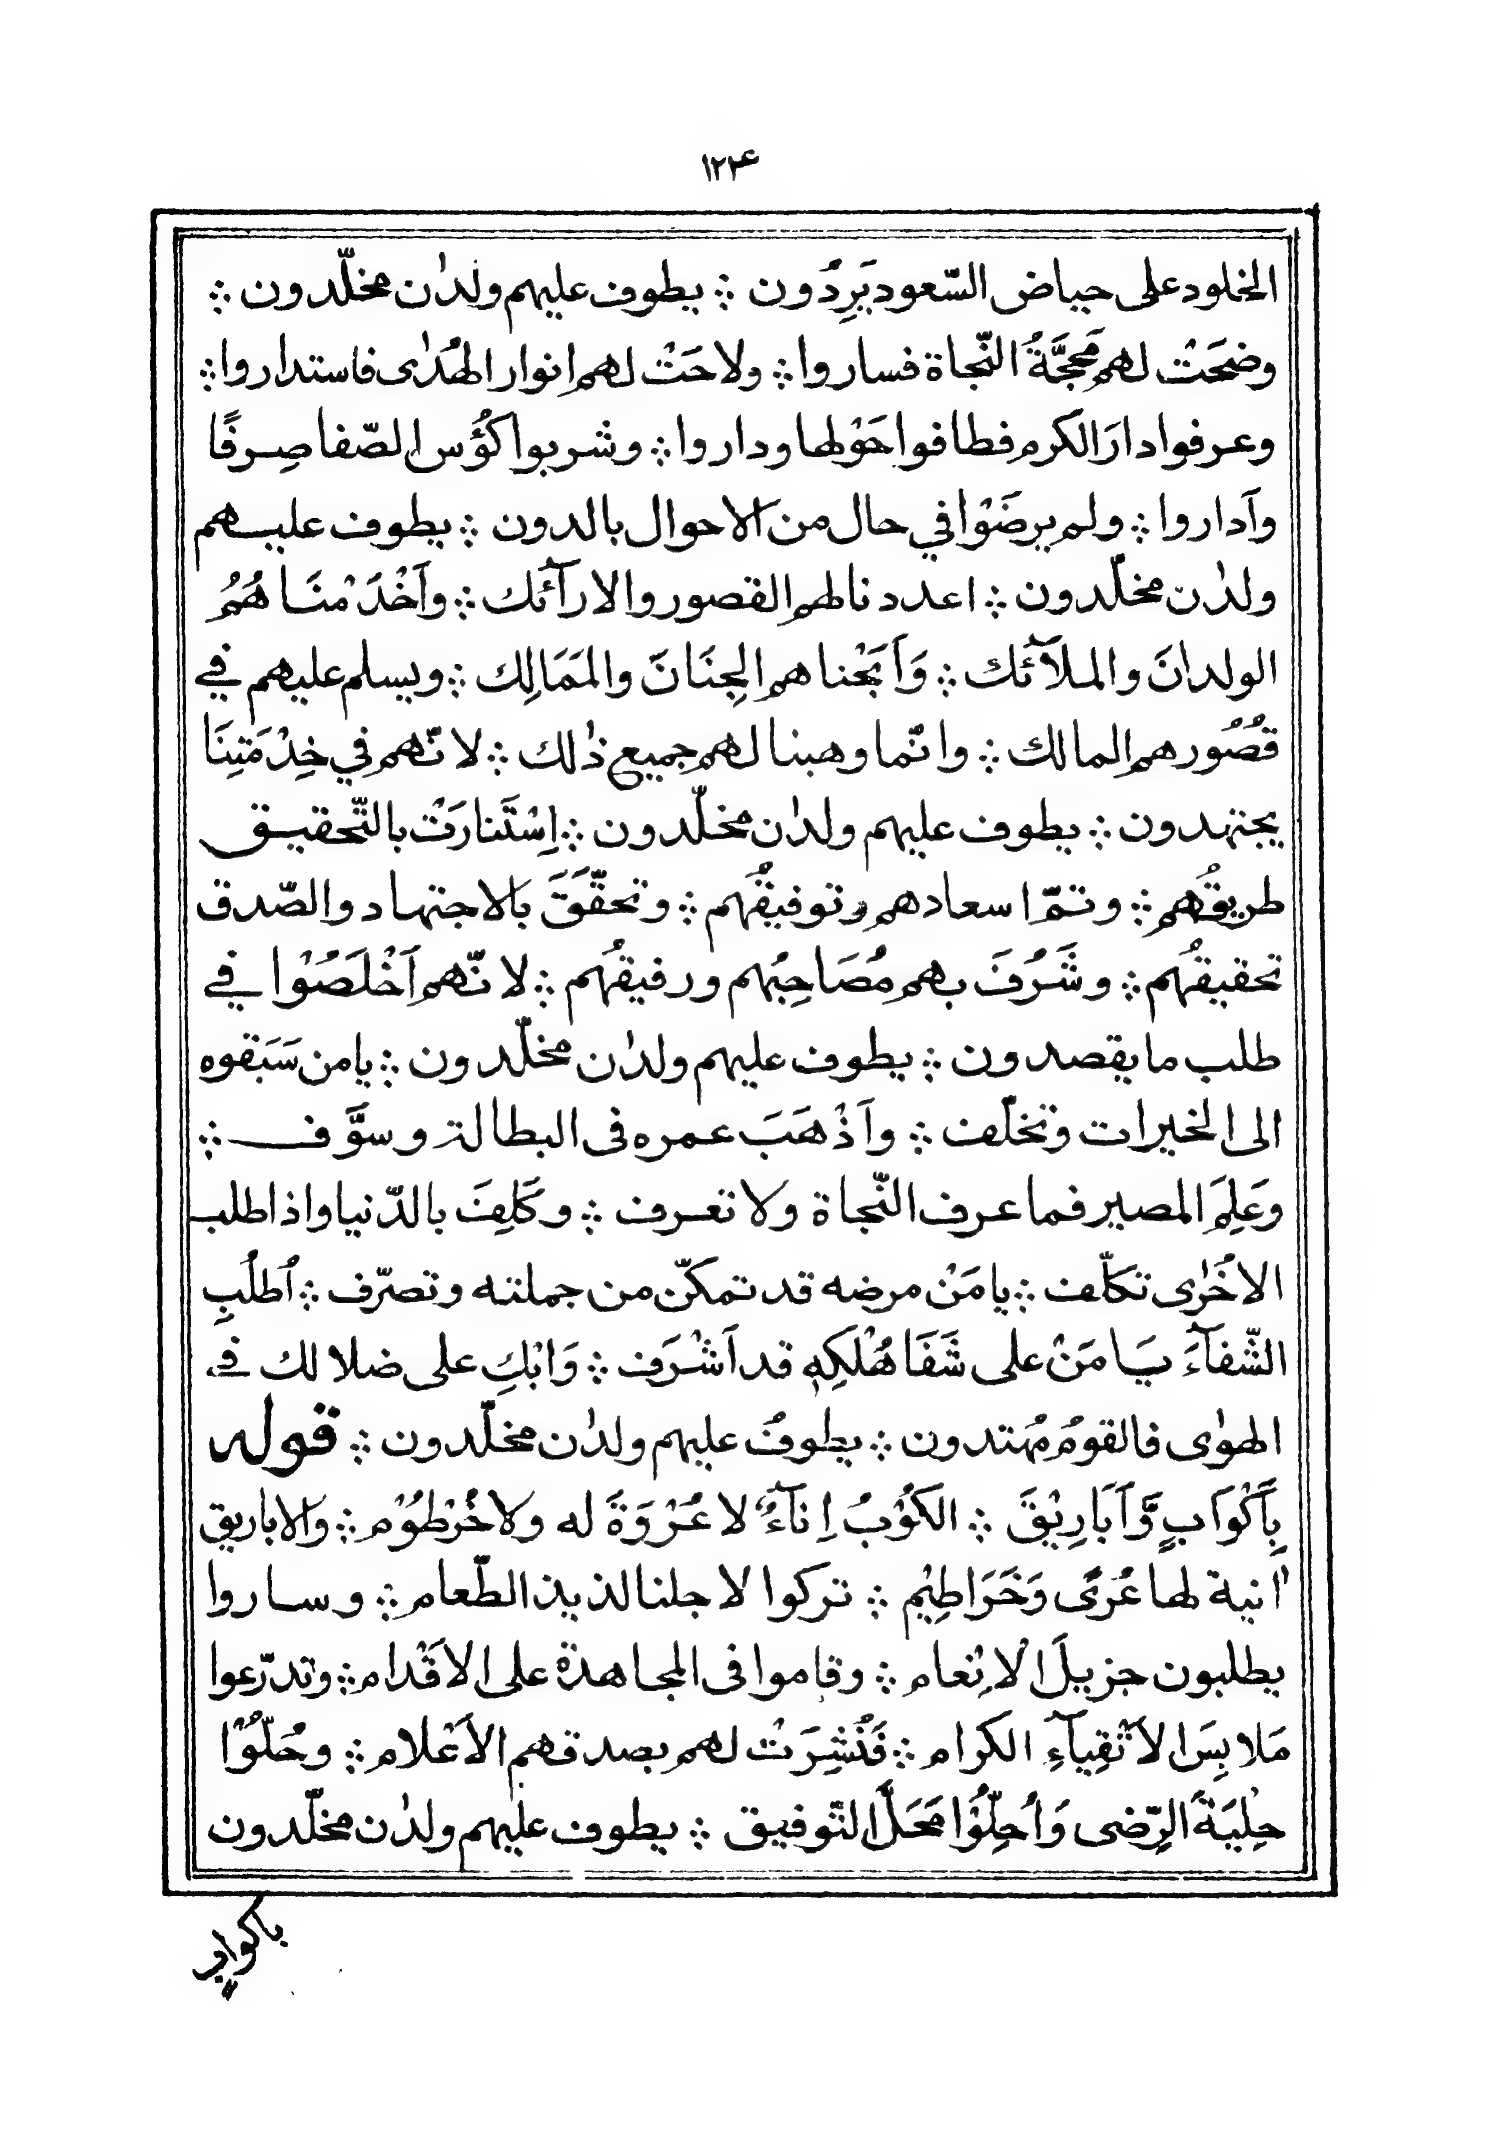 ١٢٢٤
الخلود على حياض السّعود يَرِدُون ⁘ يطوف عليهم ولدٰن مخلّدون ⁘
وضحَتْ لهم مَحَجَّةُ النّجاة فساروا ⁘ ولاحَتْ لهم انوار الهُدٰى فاستداروا ⁘
وعرفوا دارَ الكرم فطافوا حَوْلها وداروا ⁘ وشربوا كؤُس الصّفا صِرفًا
وآداروا ⁘ ولم يرضَوْا في حال من الاحوال بالدون ⁘ يطوف عليهم
ولدٰن مخلّدون ⁘ اعددنا لهم القصور والارآئك ⁘ وآخْدَمْنَا هُمُ
الولدانَ والملآئك ⁘ وَاَبَحْنا هم الجِنَانَ والمَمَالِك ⁘ ويسلم عليهم في
قُصُورهم المالك ⁘ وانّما وهبنا لهم جميع ذٰلك ⁘ لانّهم في خِدْمَتِنَا
يجتهدون ⁘ يطوف عليهم ولدٰن مخلّدون ⁘ اِسْتَنارَتْ بالتّحقيق
طريقُهم ⁘ وتمّ اسعادهم وتوفيقُهم ⁘ وتحقّقَ بالاجتهاد والصّدق
تحقيقُهم ⁘ وشَرُفَ بهم مُصَاحِبُهم ورفيقُهم ⁘ لانّهم اَخْلَصُوْا في
طلب ما يقصدون ⁘ يطوف عليهم ولدٰن مخلّدون ⁘ يا من سَبَقوه
الى الخيرات وتخلّف ⁘ وآذْهَبَ عمره فى البطالة وسوَّف ⁘
وعَلِمَ المصير فما عرف النّجاة ولا تعرف ⁘ وكَلِفَ بالدّنيا واذا طلب
الاخُرٰى تكلّف ⁘ يا مَنْ مرضه قد تمكّن من جملته وتصرّف ⁘ اُطلُبِ
الشّفآءَ يا مَنْ على شَفَا هُلْكِهٖ قد اَشْرَف ⁘ وَابْكِ على ضلالك في
الهوٰى فالقومُ مُهتدون ⁘ يطوفُ عليهم ولدٰن مخلّدون ⁘ قوله
بِاَكْوَابٍ وَّاَبَارِيْقَ ⁘ الكُوْبُ اِنآءٌ لا عُرْوَةَ له ولا خُرْطُوْم ⁘ والاباريق
اٰنية لها عُرًى وَخَرَاطِيْم ⁘ تركوا لاجلنا لذيذ الطّعام ⁘ وساروا
يطلبون جزيلَ الْاِنْعام ⁘ وقاموا فى المجاهدة على الاقْدام ⁘ وتدرّعوا
مَلابِسَ الاَتْقِيآءِ الكرام ⁘ فَنُشِرَتْ لهم بصدقهم الاَعْلام ⁘ وحُلّوْا
حِلْيَةَ الرِّضى وَاُحِلُّوْا مَحَلَّ التّوفيق ⁘ يطوف عليهم ولدٰن مخلّدون
باكوابٍ